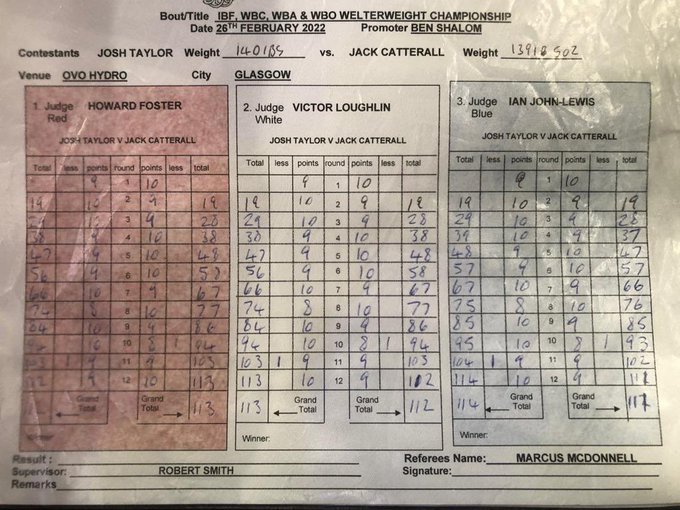 Bout/Title IBF, WBC, WBA & WBO WELTERWEIGHT CHAMPIONSHIP
Date 26TH FEBRUARY 2022 Promoter BEN SHALOM
Contestants JOSH TAYLOR Weight 140lbs vs. JACK CATTERALL Weight 139lb 5oz
Venue OVO HYDRO City GLASGOW
1. Judge HOWARD FOSTER
Red
JOSH TAYLOR V JACK CATTERALL
Total less points round points less total
9 1 10
19 10 2 9 19
29 10 3 9 28
38 9 4 10 38
47 9 5 10 48
56 9 6 10 58
66 10 7 9 67
74 8 8 10 77
84 10 9 9 86
94 10 10 8 1 94
103 1 9 11 9 103
112 9 12 10 113
Grand Total Grand Total 113
Winner:
2. Judge VICTOR LOUGHLIN
White
JOSH TAYLOR V JACK CATTERALL
Total less points round points less total
9 1 10
19 10 2 9 19
29 10 3 9 28
38 9 4 10 38
47 9 5 10 48
56 9 6 10 58
66 10 7 9 67
74 8 8 10 77
84 10 9 9 86
94 10 10 8 1 94
103 1 9 11 9 103
113 10 12 9 112
113 Grand Total Grand Total 112
Winner:
3. Judge IAN JOHN-LEWIS
Blue
JOSH TAYLOR V JACK CATTERALL
Total less points round points less total
9 1 10
19 10 2 9 19
29 10 3 9 28
39 10 4 9 37
48 9 5 10 47
57 9 6 10 57
67 10 7 9 66
75 8 8 10 76
85 10 9 9 85
95 10 10 8 1 93
104 1 9 11 9 102
114 10 12 9 111
114 Grand Total Grand Total 111
Winner:
Result :
Supervisor: ROBERT SMITH
Remarks
Referees Name: MARCUS MCDONNELL
Signature: